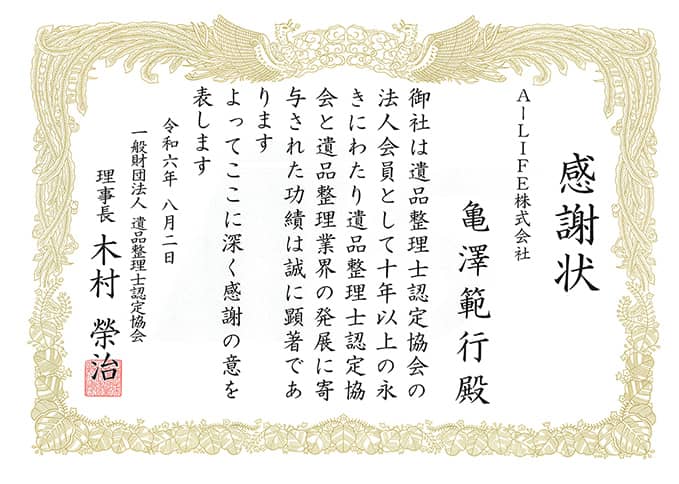 感謝状
A－LIFE株式会社
亀澤範行殿
御社は遺品整理士認定協会の
法人会員として十年以上の永
きにわたり遺品整理士認定協
会と遺品整理業界の発展に寄
与された功績は誠に顕著であ
ります
よってここに深く感謝の意を
表します
令和六年 八月二日
一般財団法人 遺品整理士認定協会
理事長 木村 榮治